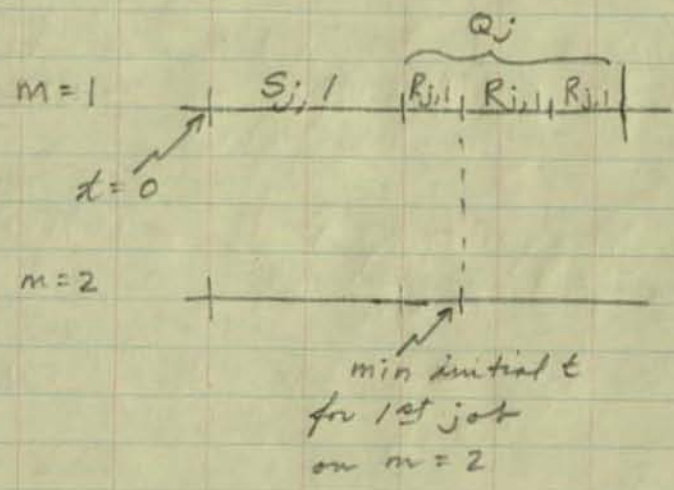 Qj
m = 1
Sj, 1
Rj,1
Rj,1
Rj,1
t = 0
m = 2
min initial t
for 1st job
on m = 2